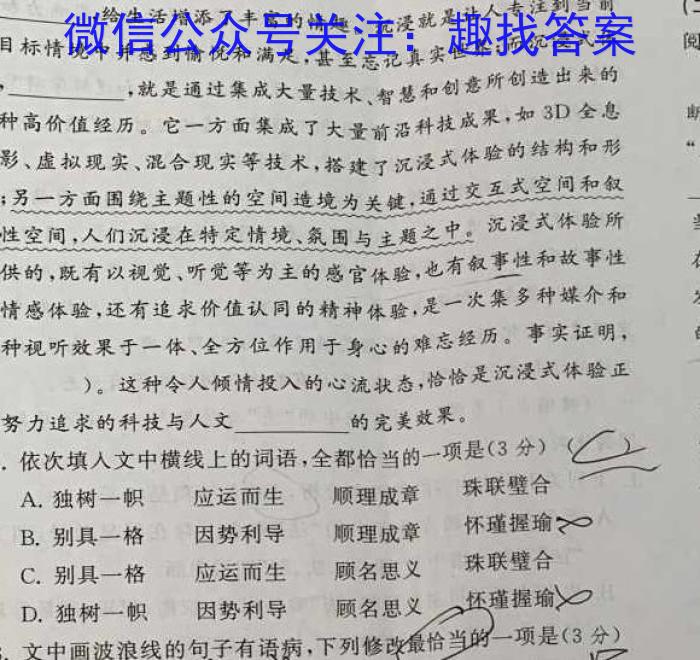 给生活增添了丰富的情趣。沉浸就是让人专注到当前
微信公众号关注：趣找答案
目标情境中并感到愉悦和满足，甚至忘记真实世界
，________，就是通过集成大量技术、智慧和创意所创造出来的
种高价值经历。它一方面集成了大量前沿科技成果，如3D全息
影、虚拟现实、混合现实等技术，搭建了沉浸式体验的结构和形
；另一方面围绕主题性的空间造境为关键，通过交互式空间和叙
性空间，人们沉浸在特定情境、氛围与主题之中。沉浸式体验所
供的，既有以视觉、听觉等为主的感官体验，也有叙事性和故事性
情感体验，还有追求价值认同的精神体验，是一次集多种媒介和
种视听效果于一体、全方位作用于身心的难忘经历。事实证明，
）。这种令人倾情投入的心流状态，恰恰是沉浸式体验正
努力追求的科技与人文________的完美效果。
. 依次填入文中横线上的词语，全都恰当的一项是(3分)（C）
A. 独树一帜 应运而生 顺理成章 珠联璧合
B. 别具一格 因势利导 顺理成章 怀瑾握瑜
C. 别具一格 应运而生 顾名思义 珠联璧合
D. 独树一帜 因势利导 顾名思义 怀瑾握瑜
. 文中画波浪线的句子有语病，下列修改最恰当的一项是(3分)
阅
断